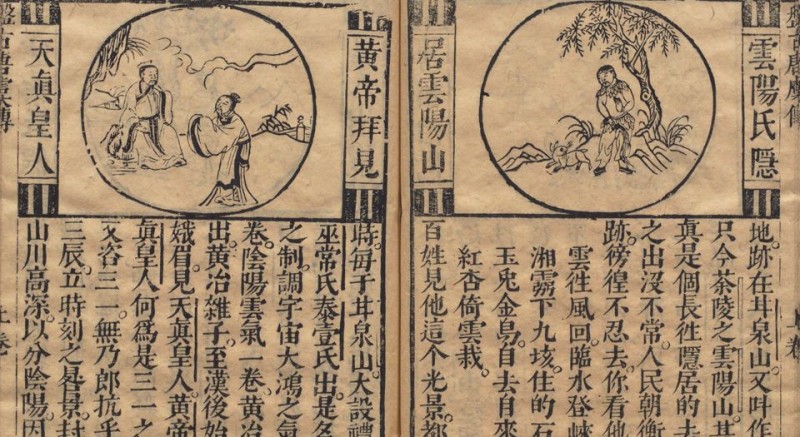 雲陽氏隱
居雲陽山
地。跡在甘泉山。又叫作
只今茶陵之雲陽山。其
真是個長徃隱居的。去
之出沒不常。人民朝衝
跡。徬徨不忍去。你看他
雲徃風回。臨水登
湘霧下九垓。住的石
玉兎金烏。自去自來
紅杏倚雲栽。
百姓見他這个光景。都
黃帝拜見
天眞皇人
時。每于甘泉山。大設禮
巫常氏泰壹氏。出是名
之制。調宇宙大鴻之氣
卷。陰陽雲氣一卷。黃冶
出黃冶雜子。至漢後始
娥眉見天眞皇人。黃帝
眞皇人。何爲是三一之
又咨三一。無乃郎抗乎
三辰。立時刻之晷景。封
山川高深。以分陰陽。因
盤古唐虞傳
上卷